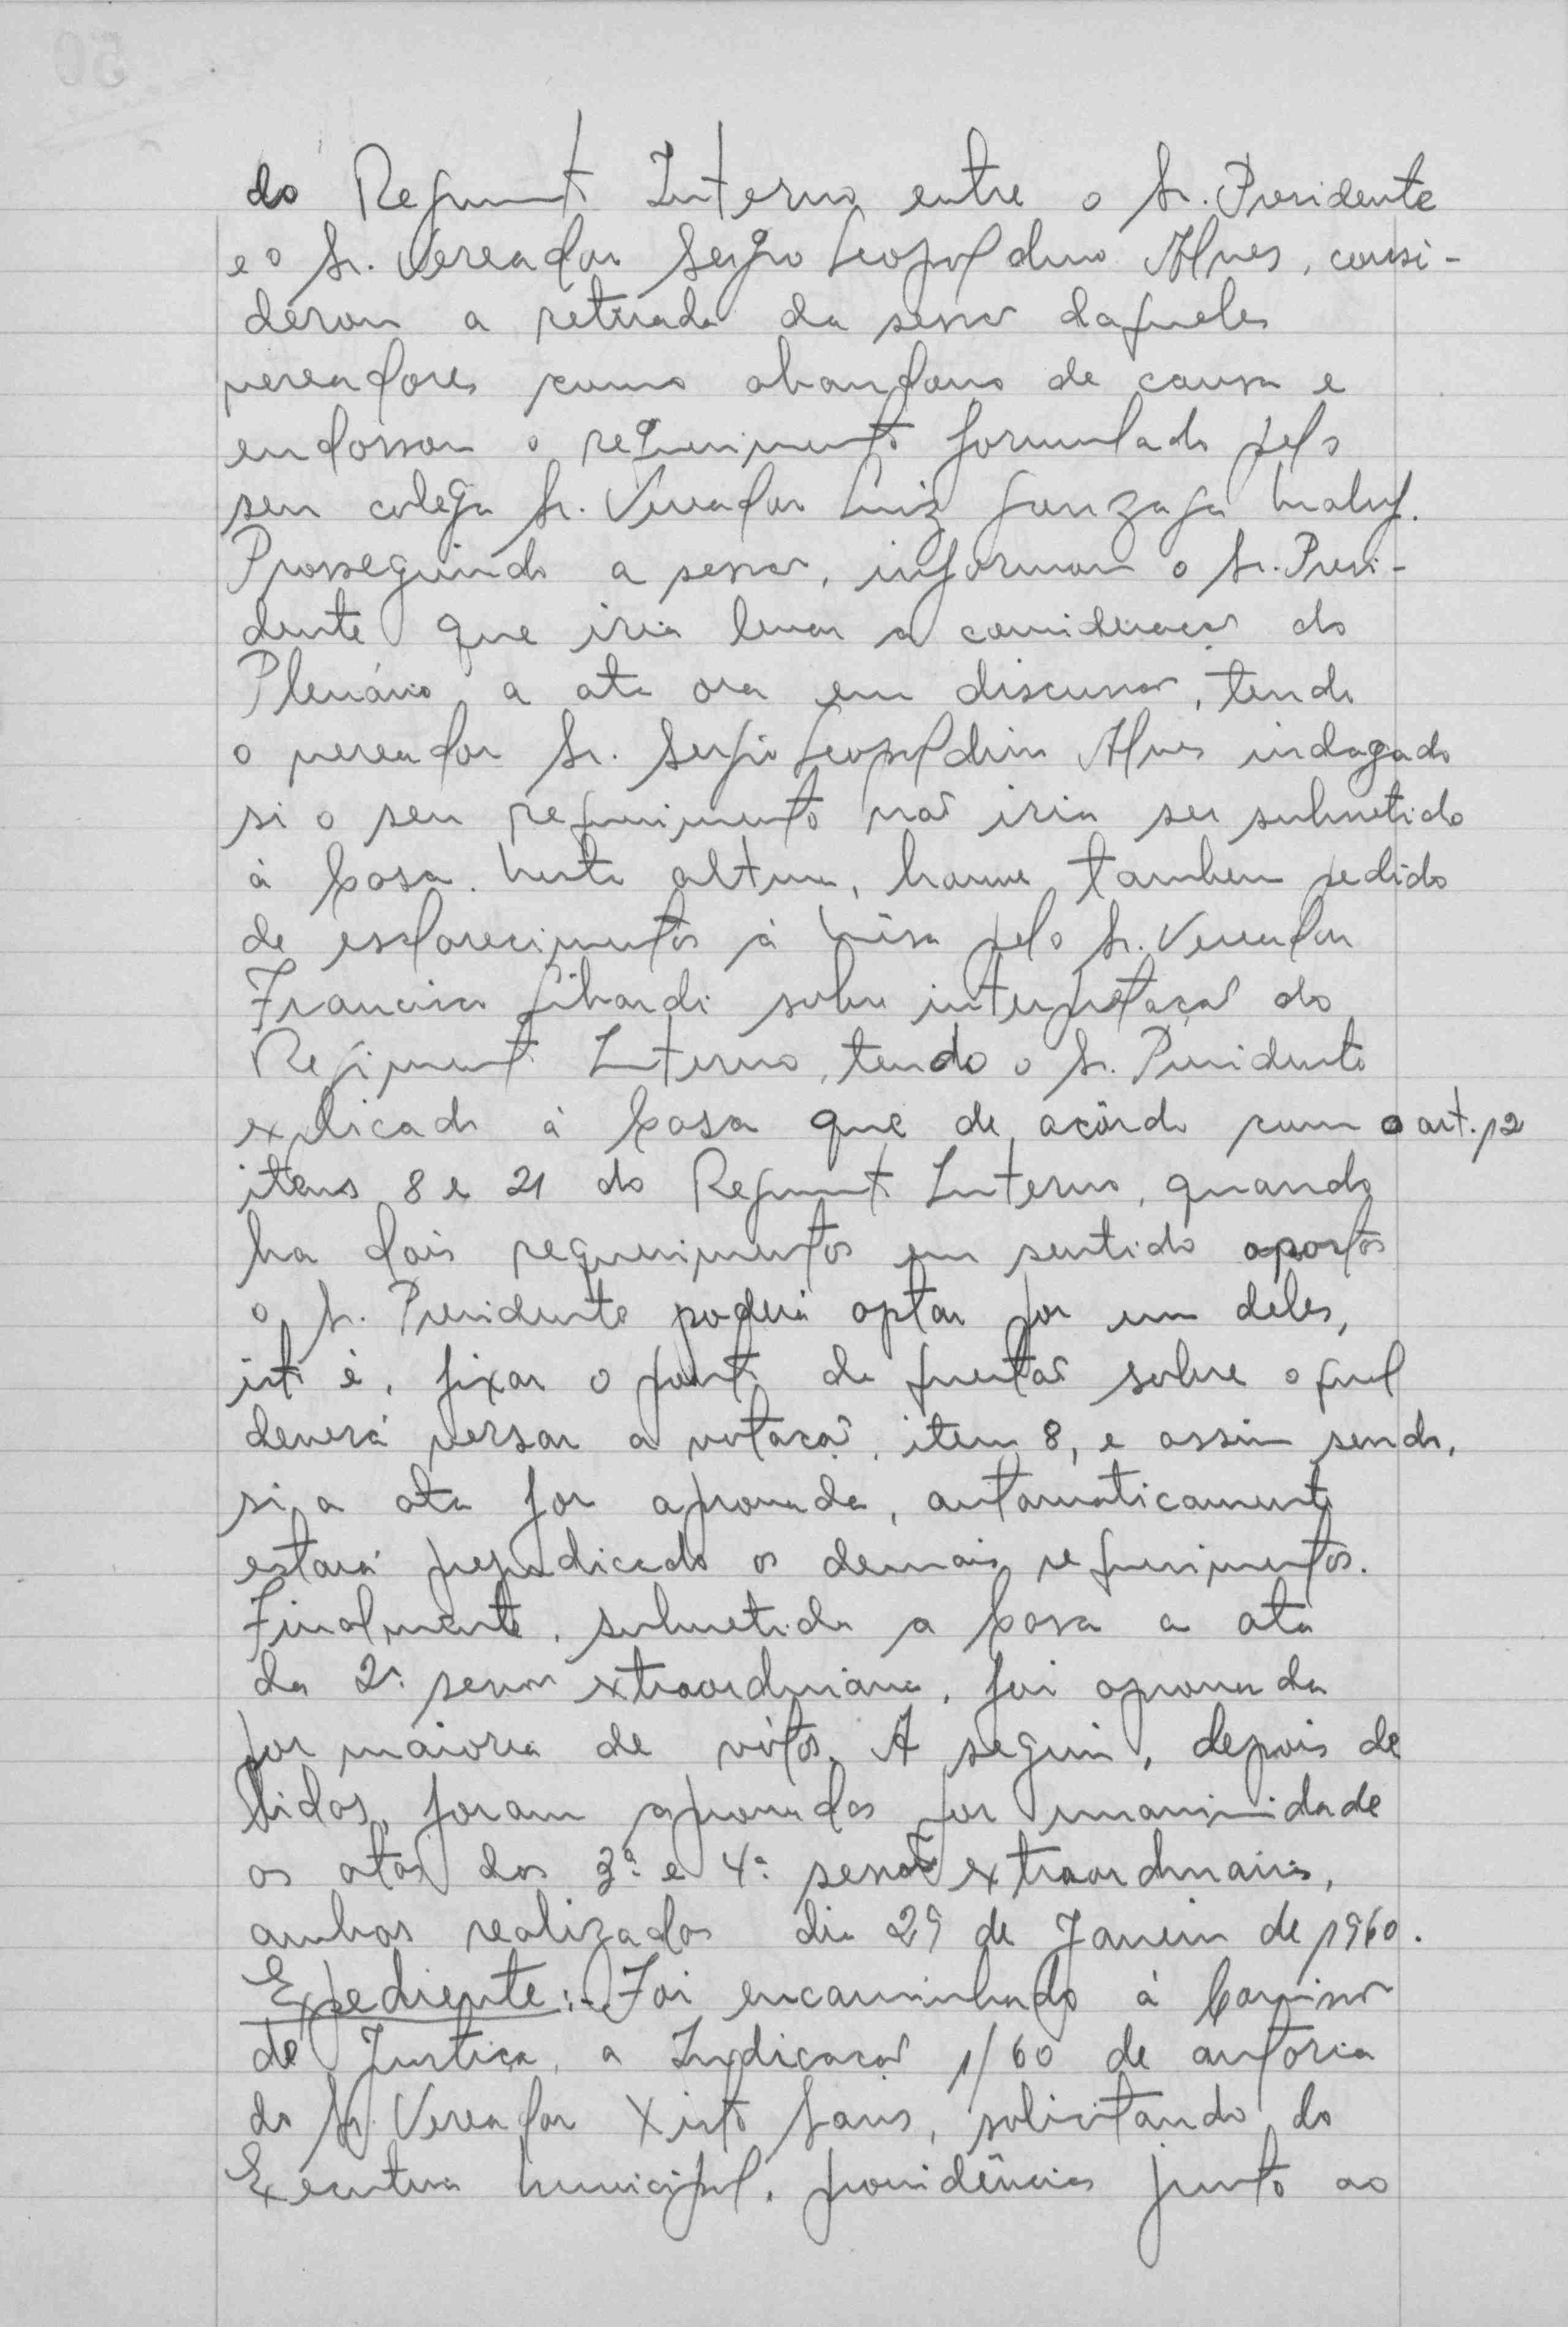 do Regiment Interno entre o Sr. Presidente
e o Sr. Vereador Sergio Leopoldino Alves, consi-
derou a retirada da sessão daqueles
vereadores como abandono de causa e
endossou o requerimento formulado pelo
seu colega Sr. Vereador Luiz Gonzaga Maluf.
Prosseguindo a sessão, informou o Sr. Presi-
dente que iria levar a consideração do
Plenário a ata ora em discussão, tendo
o vereador Sr. Sergio Leopoldino Alves indagado
si o seu requerimento não iria ser submetido
à Casa. Nesta altura, houve tambem pedido
de esclarecimentos à Mêsa pelo Sr. Vereador
Francisco Gibardi sobre interpretação do
Regimento Interno, tendo o Sr. Presidente
explicado à Casa que de acôrdo com o art. 12
itens 8 e 21 do Regimento Interno, quando
ha dois requerimentos em sentido opostos
o Sr. Presidente poderá optar por um deles,
isto é, fixar o ponto de questão sobre o qual
deverá versar a votação, item 8, e assim sendo,
si a ata for aprovada, automaticamente
estará prejudicado os demais requerimentos.
Finalmente, submetida a Casa a ata
da 2ª sessão extraordinaria, foi aprovada
por maioria de vótos. A seguir, depois de
lidas, foram aprovadas por unanimidade
as atas das 3ª e 4ª sessões extraordinarias,
ambas realizadas dia 29 de Janeiro de 1960.
Expediente:- Foi encaminhado à Comissão
de Justiça, a Indicação 1/60 de autoria
do Sr. Vereador Xisto, solicitando do
Executivo Municipal, providências junto ao